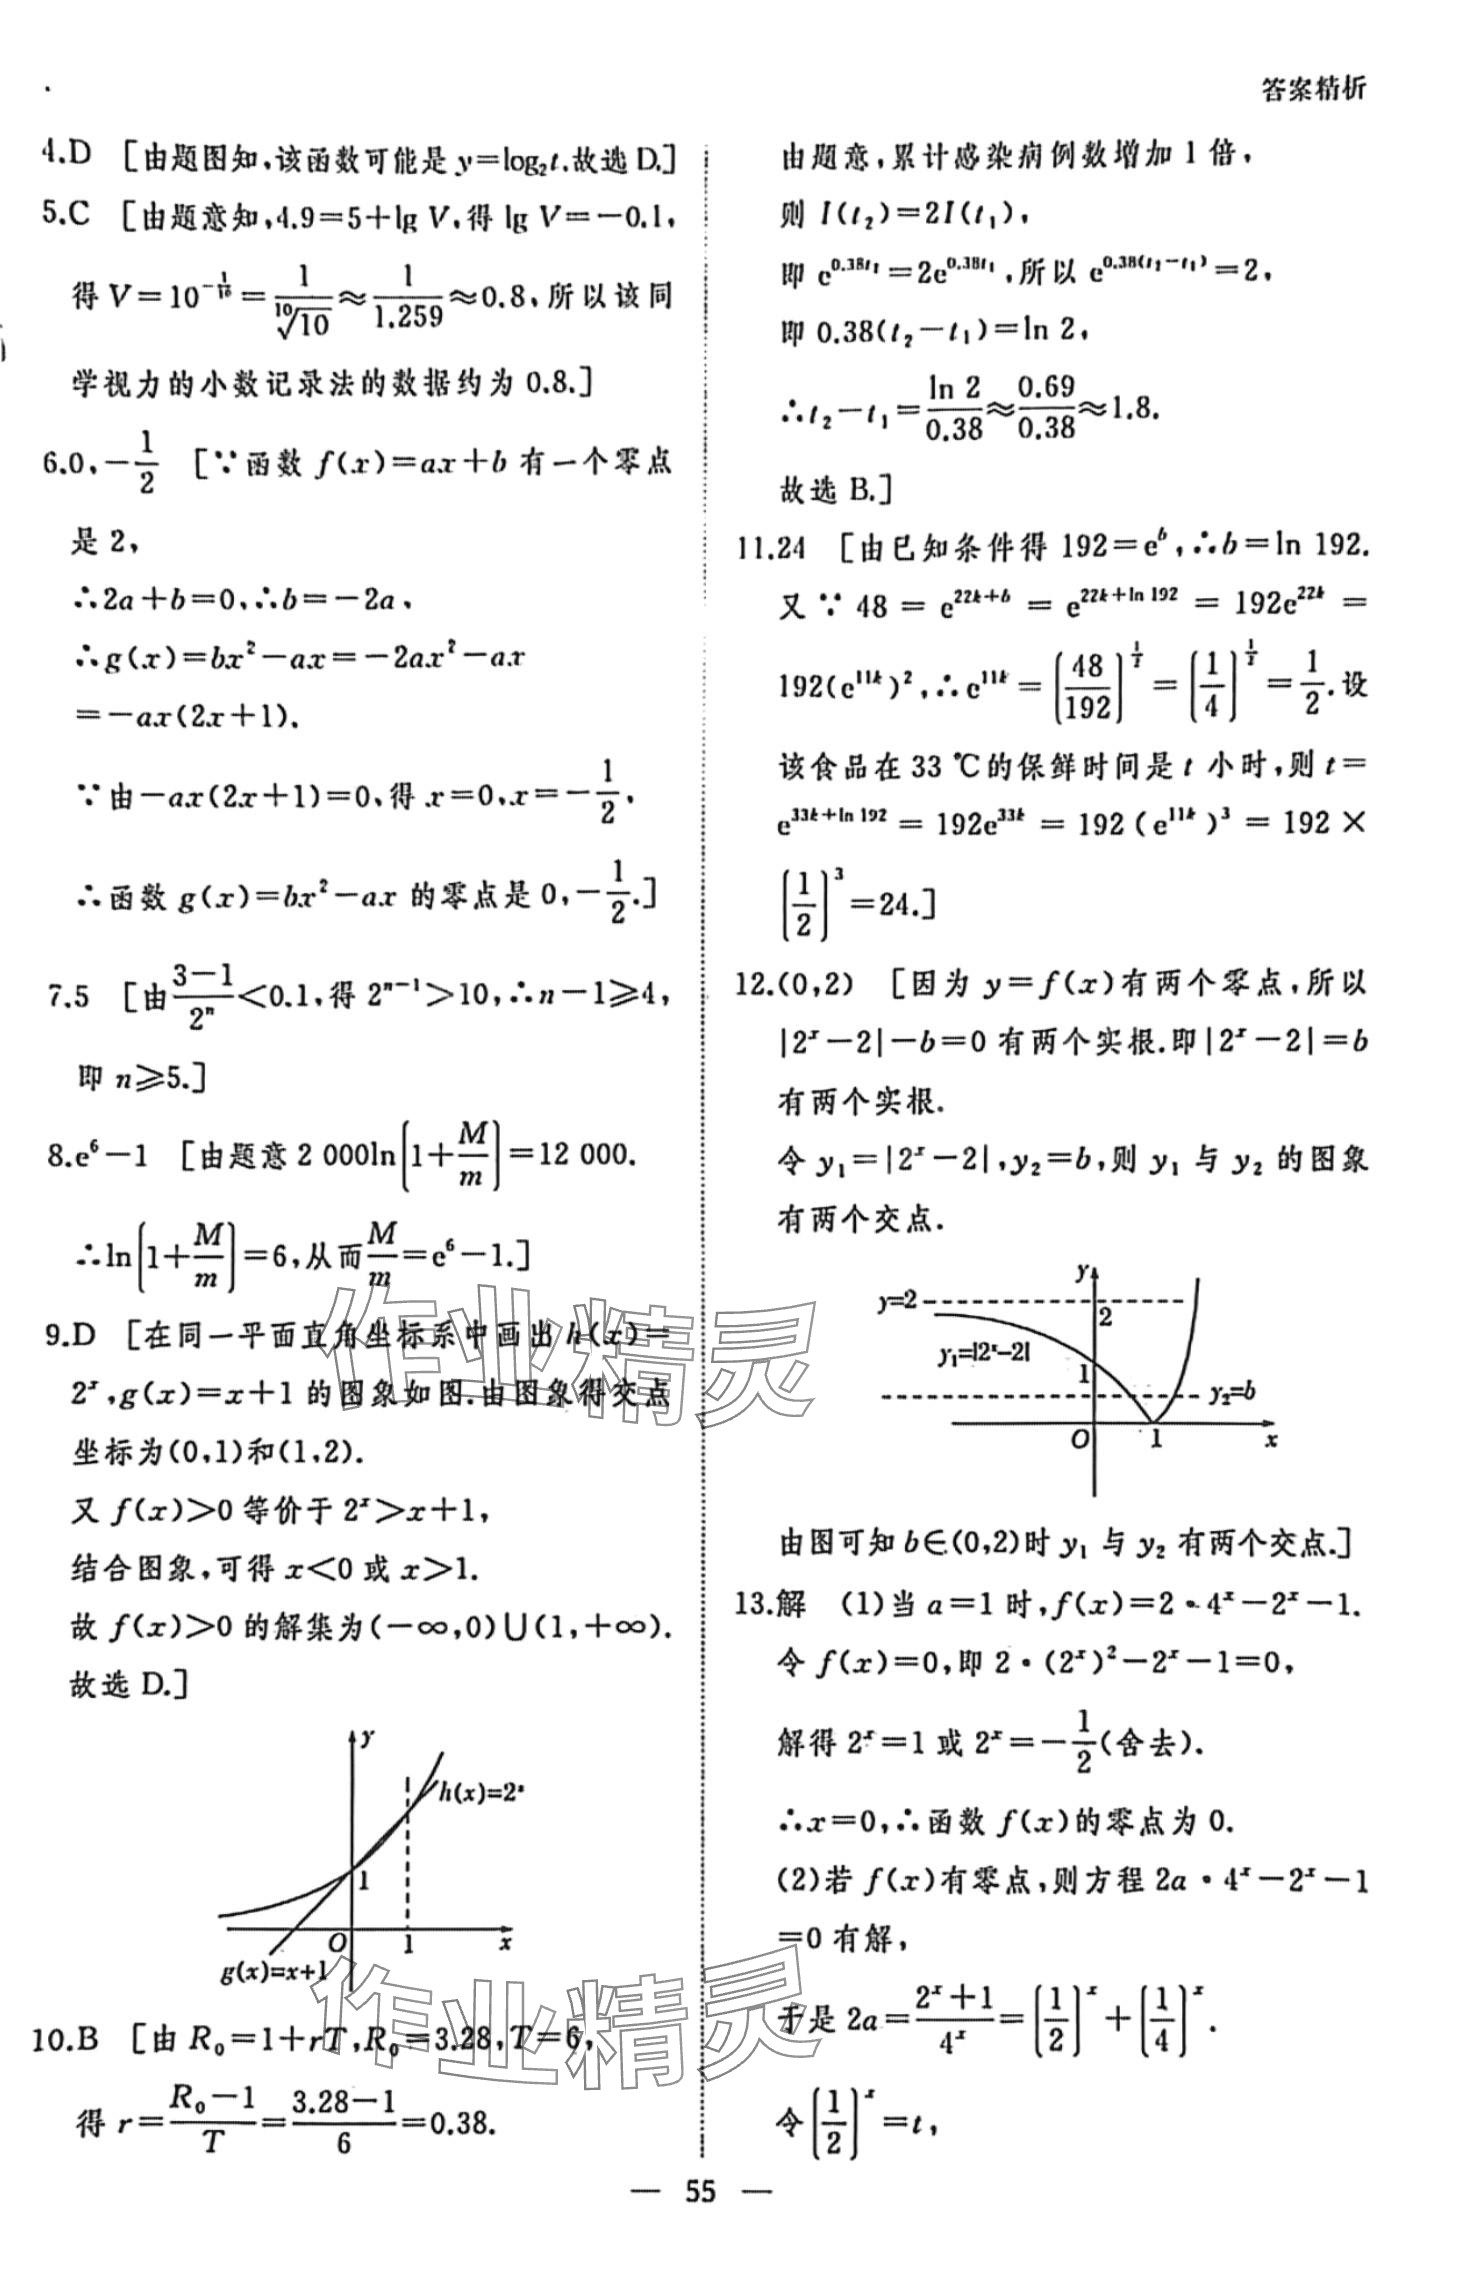 答案精析
4.D [由题图知,该函数可能是 y=log₂t.故选 D.]
5.C [由题意知,4.9=5+lg V,得 lg V=-0.1,
得 V=10^{-1/10}=1/\sqrt[10]{10}≈1/1.259≈0.8,所以该同
学视力的小数记录法的数据约为 0.8.]
6.0,-1/2 [∵函数 f(x)=ax+b 有一个零点
是 2,
∴2a+b=0,∴b=-2a,
∴g(x)=bx²-ax=-2ax²-ax
=-ax(2x+1).
∵由-ax(2x+1)=0,得 x=0,x=-1/2,
∴函数 g(x)=bx²-ax 的零点是 0,-1/2.]
7.5 [由(3-1)/2^n<0.1,得 2^{n-1}>10,∴n-1≥4,
即 n≥5.]
8.e⁶-1 [由题意 2 000ln(1+M/m)=12 000.
∴ln(1+M/m)=6,从而M/m=e⁶-1.]
9.D [在同一平面直角坐标系中画出 h(x)=
2^x,g(x)=x+1 的图象如图.由图象得交点
坐标为(0,1)和(1,2).
又 f(x)>0 等价于 2^x>x+1,
结合图象,可得 x<0 或 x>1.
故 f(x)>0 的解集为(-∞,0)∪(1,+∞).
故选 D.]
y
h(x)=2^x
1
O 1 x
g(x)=x+1
10.B [由 R₀=1+rT,R₀=3.28,T=6,
得 r=(R₀-1)/T=(3.28-1)/6=0.38.
由题意,累计感染病例数增加 1 倍,
则 I(t₂)=2I(t₁),
即 e^{0.38t₂}=2e^{0.38t₁},所以 e^{0.38(t₂-t₁)}=2,
即 0.38(t₂-t₁)=ln 2,
∴t₂-t₁=ln 2/0.38≈0.69/0.38≈1.8.
故选 B.]
11.24 [由已知条件得 192=e^b,∴b=ln 192.
又∵48=e^{22k+b}=e^{22k+ln 192}=192e^{22k}=
192(e^{11k})²,∴e^{11k}=(48/192)^{1/2}=(1/4)^{1/2}=1/2.设
该食品在 33 ℃的保鲜时间是 t 小时,则 t=
e^{33k+ln 192}=192e^{33k}=192(e^{11k})³=192×
(1/2)³=24.]
12.(0,2) [因为 y=f(x)有两个零点,所以
|2^x-2|-b=0 有两个实根.即|2^x-2|=b
有两个实根.
令 y₁=|2^x-2|,y₂=b,则 y₁ 与 y₂ 的图象
有两个交点.
y
y=2
2
y₁=|2^x-2|
1
y₂=b
O 1 x
由图可知 b∈(0,2)时 y₁ 与 y₂ 有两个交点.]
13.解 (1)当 a=1 时,f(x)=2·4^x-2^x-1.
令 f(x)=0,即 2·(2^x)²-2^x-1=0,
解得 2^x=1 或 2^x=-1/2(舍去).
∴x=0,∴函数 f(x)的零点为 0.
(2)若 f(x)有零点,则方程 2a·4^x-2^x-1
=0 有解,
于是 2a=(2^x+1)/4^x=(1/2)^x+(1/4)^x.
令(1/2)^x=t,
— 55 —
作业精灵
作业精灵